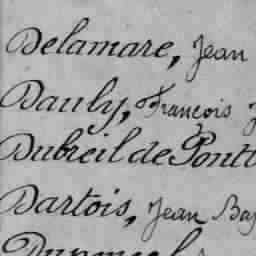 Delamare, Jean
Dauly, François
Dubreil de Pont
Dartois, Jean Bap